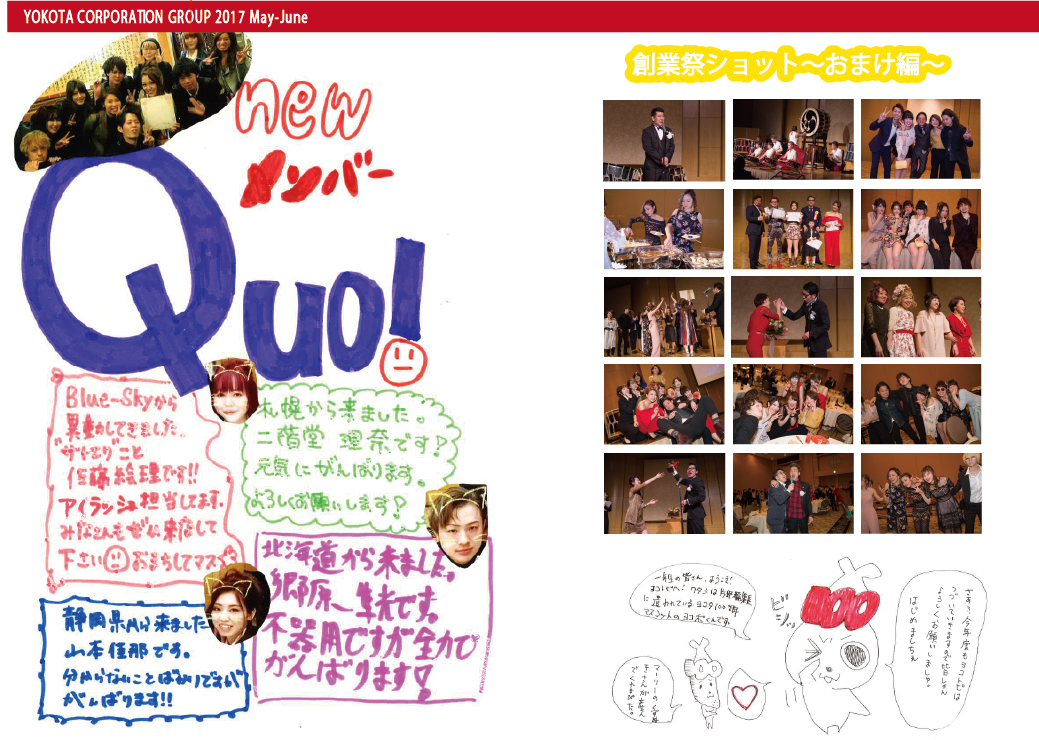 YOKOTA CORPORATION GROUP 2017 May-June
new
メンバー
Quo!
Blue-Skyから
異動してきました。
こと
佐藤絵理です!!
アイラッシュ担当してます。
みなさんもぜひ来店して
下さい
おまちしてマス
札幌から来ました。
二階堂 理奈です?
元気にがんばります。
よろしくお願いします?
北海道から来ました。
郷原 です。
不器用ですが全力で
がんばります!
静岡県から来ました
山本佳那です。
分からないことばかりですが
がんばります!!
創業祭ショット〜おまけ編〜
一般の皆さん、ようこそ!
ヨコトピへ! ワタシは
に追われているヨコタ100周年
マスコットのヨコ太くんです。
ビシッ
さあ!今年度もヨコトピは
つづいていきますので皆しゃん
よろしくお願いしましゅ。
はじめましちぇ
100
でくやまびた。